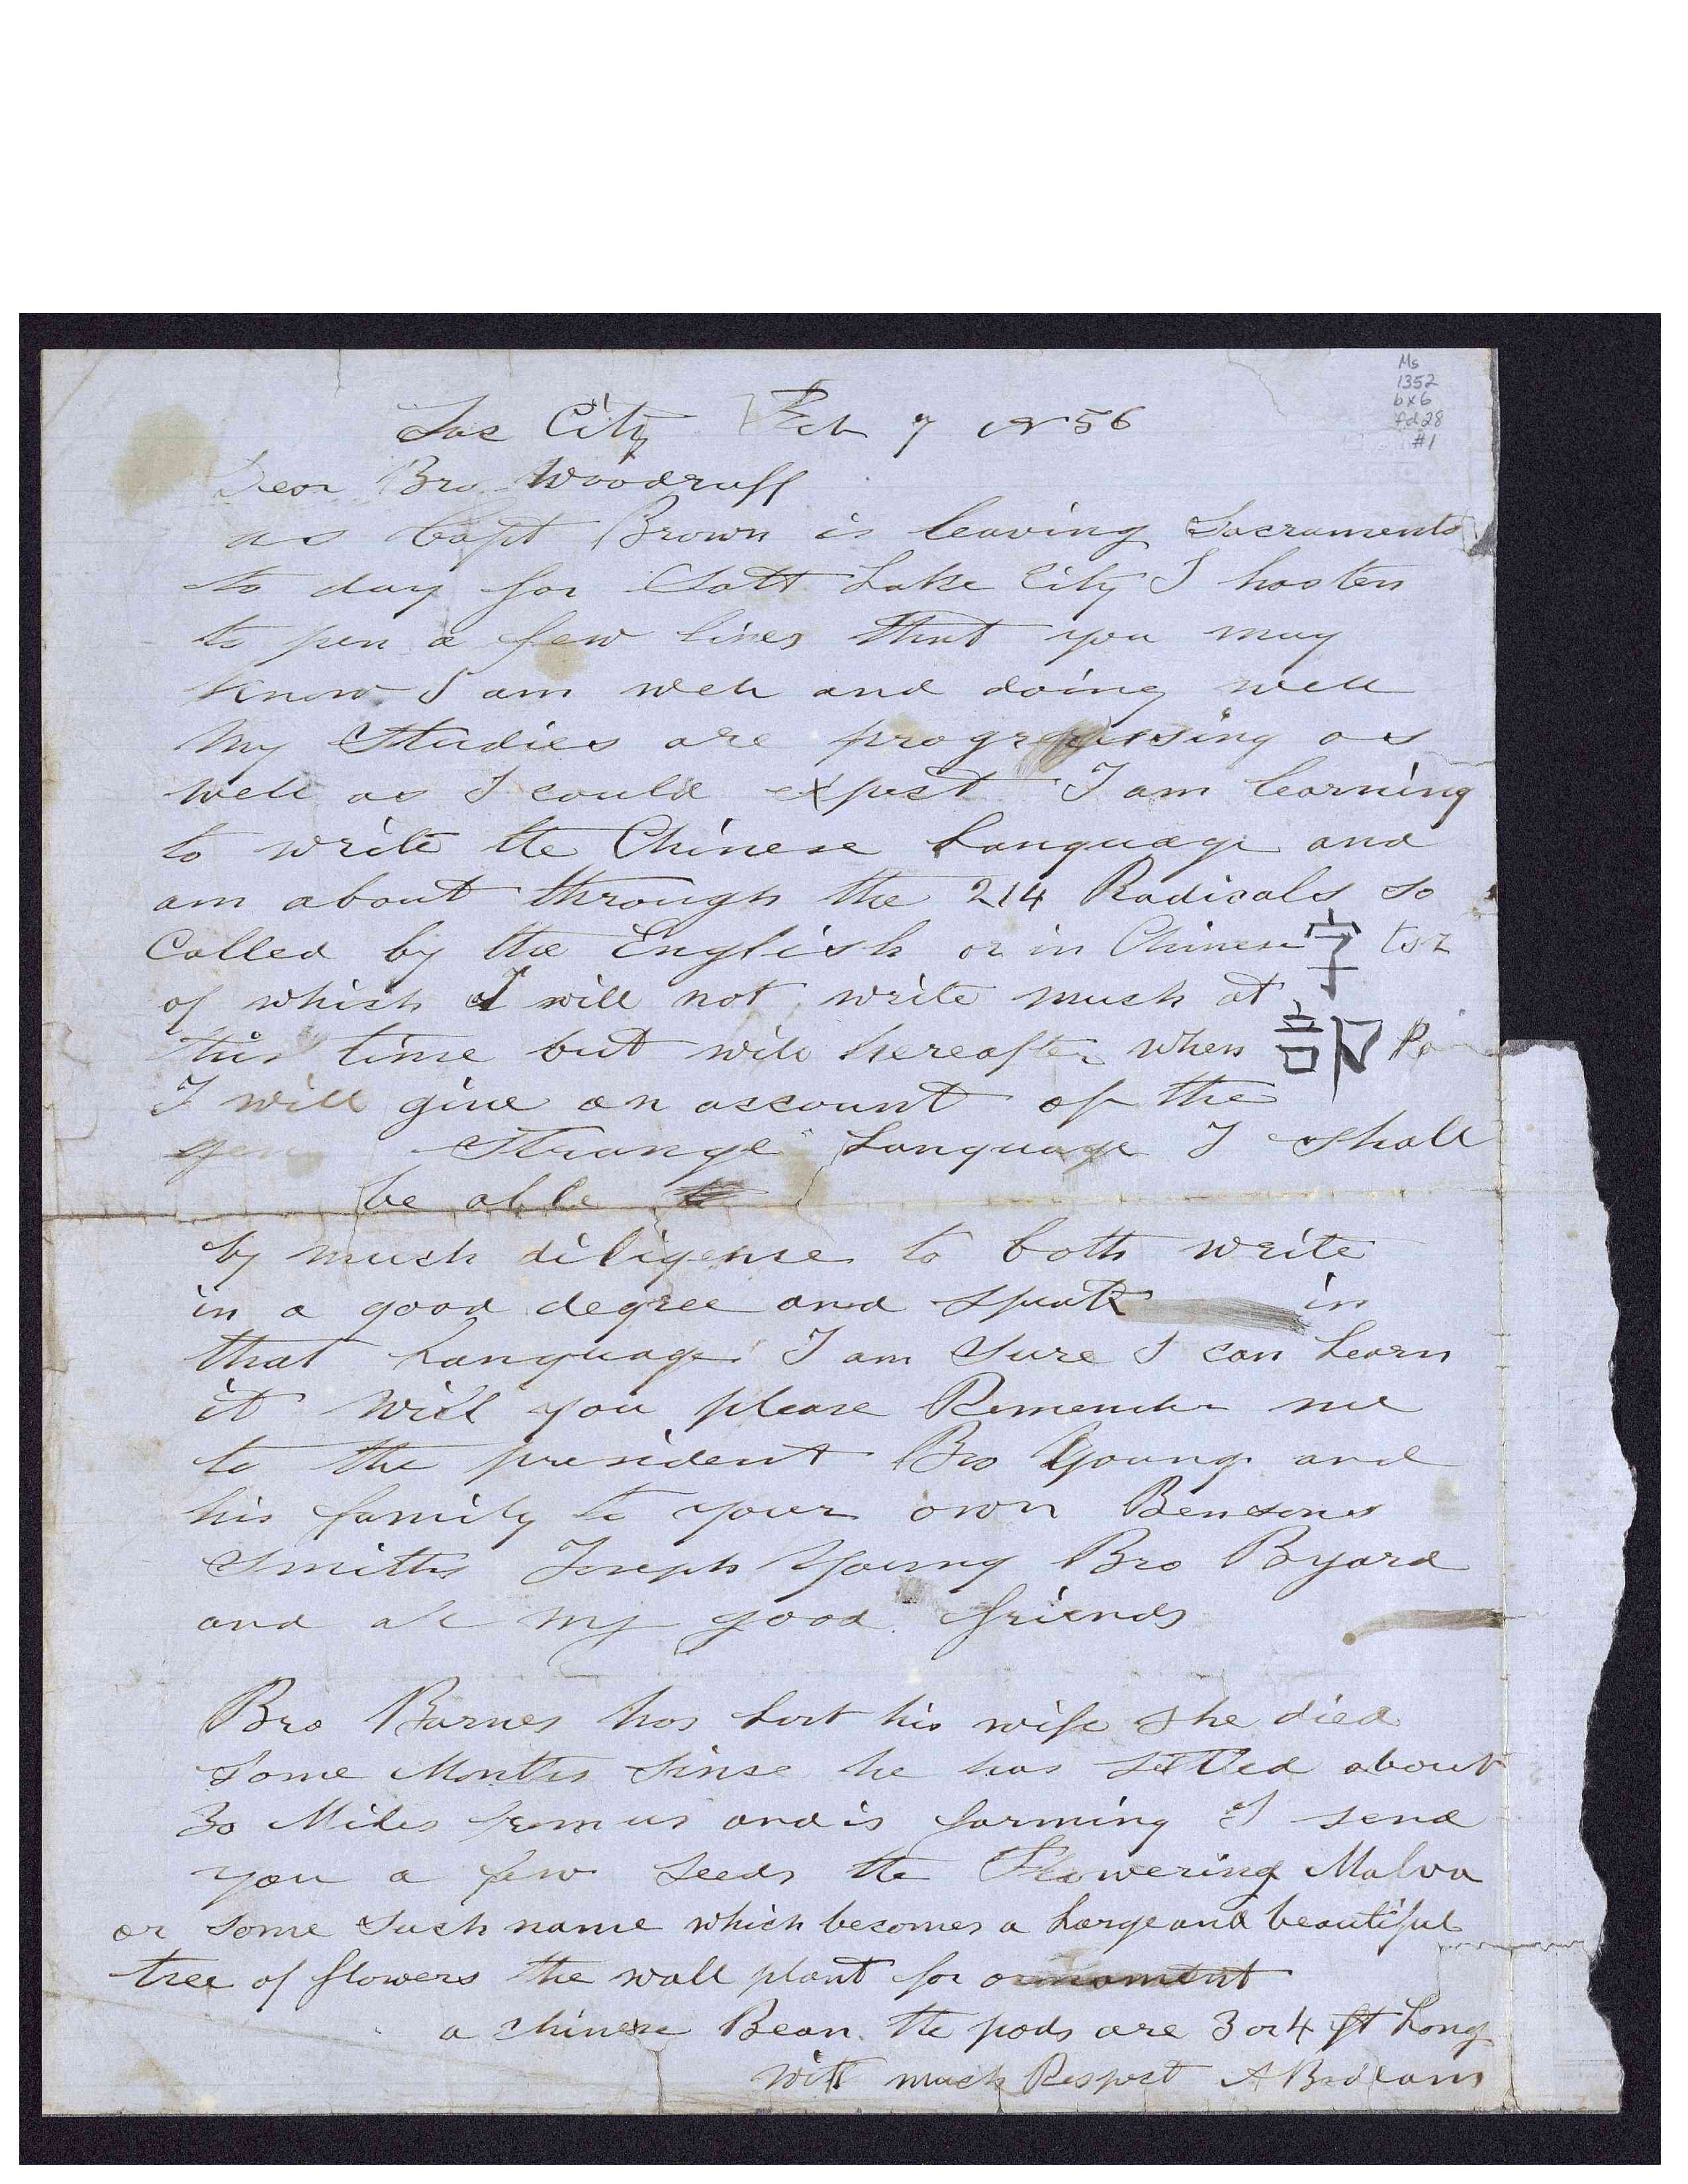 Ms
1352
bx 6
fd 28
#1
Sac City Feb 7 1856
Dear Bro Woodruff
as Capt Brown is leaving Sacramento
to day for Salt Lake City I hasten
to pen a few lines that you may
know I am well and doing well
My Studies are progressing as
well as I could expect I am learning
to write the Chinese Language and
am about through the 214 Radicals so
Called by the English or in Chinese 字 tsz
of which I will not write much at
this time but will hereafter when 部
I will give an account of the
Strange Language I shall
be able
by much diligense to both write
in a good degree and speak in
that Language I am Sure I can Learn
it Will you please Remember me
to the president Bro Young and
his family to your own Bensons
Smiths Joseph Young Bro Byard
and all my good friends
Bro Barnes has Lost his wife She died
Some Months Sinse he has settled about
30 Miles from us and is farming I send
you a few seeds the Flowering Malva
or Some Such name which becomes a Large and beautiful
tree of flowers the wall plant for ornament
a chinese Bean the pods are 3 or 4 ft Long
with much Respect A Badlam